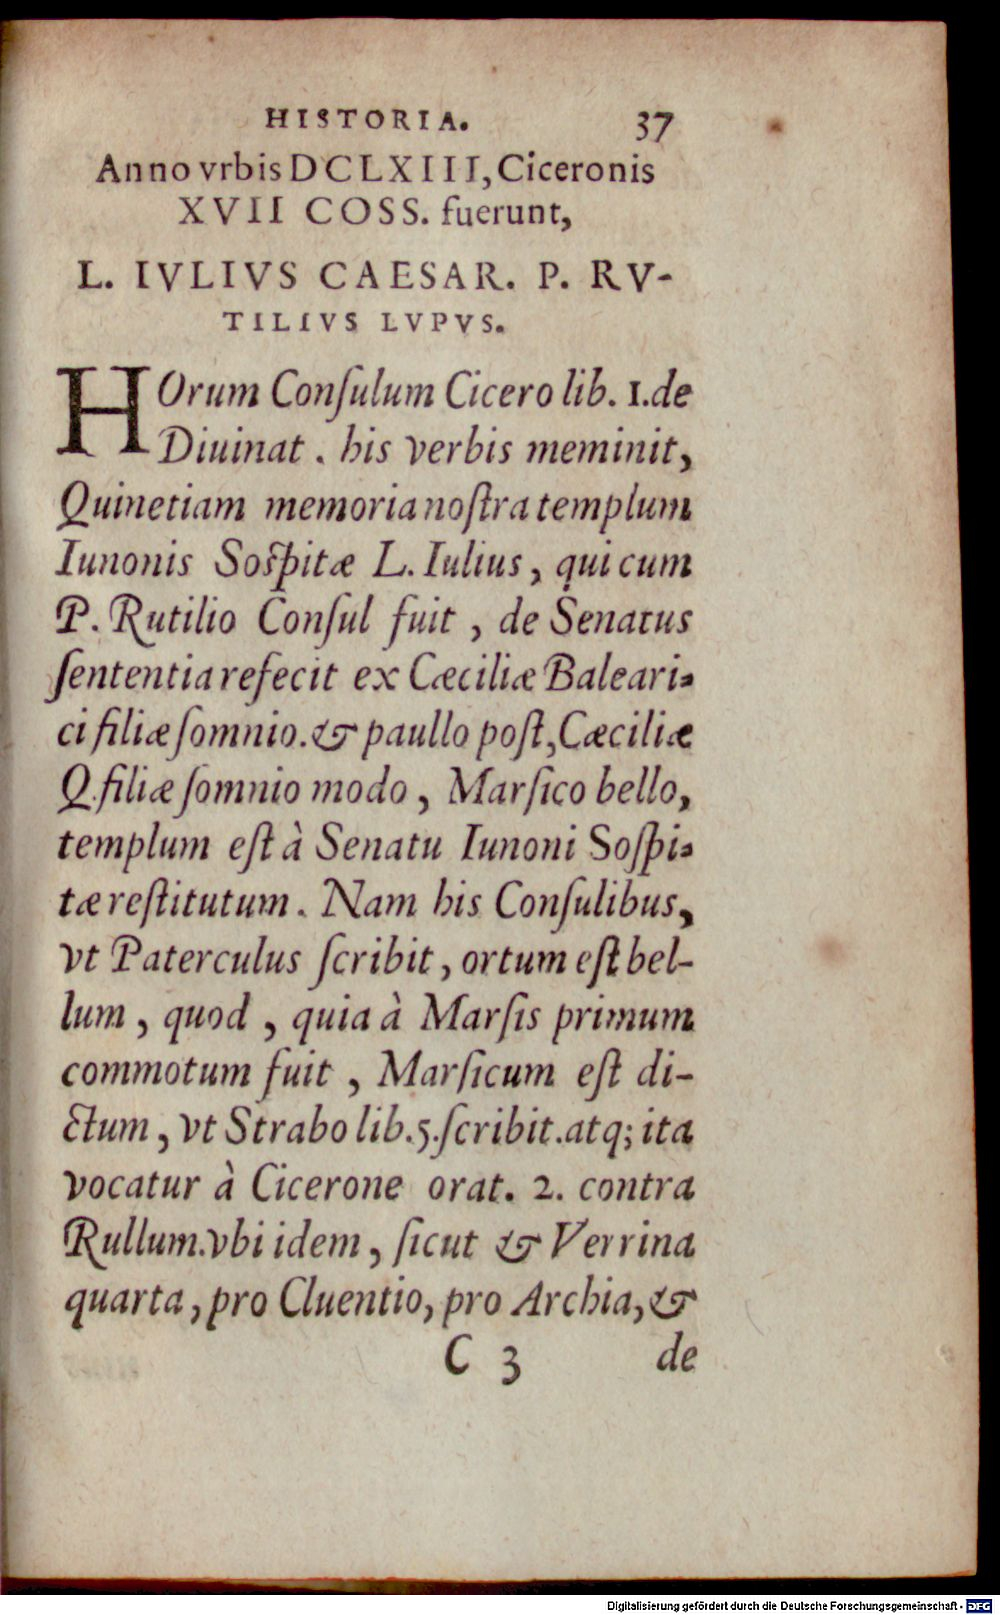 HISTORIA. 37
Anno vrbis DCLXIII, Ciceronis
XVII COSS. fuerunt,
L. IVLIVS CAESAR. P. RV-
TILIVS LVPVS.
HOrum Conſulum Cicero lib. 1.de
Diuinat. his verbis meminit,
Quinetiam memoria noſtra templum
Iunonis Soſpitæ L. Iulius, qui cum
P. Rutilio Conſul fuit, de Senatus
ſententia refecit ex Cæciliæ Baleari-
ci filiæ ſomnio. & paullo poſt, Cæciliæ
Q. filiæ ſomnio modo, Marſico bello,
templum eſt à Senatu Iunoni Soſpi-
tæ reſtitutum. Nam his Conſulibus,
vt Paterculus ſcribit, ortum eſt bel-
lum, quod, quia à Marſis primum
commotum fuit, Marſicum eſt di-
ctum, vt Strabo lib.5.ſcribit.atq; ita
vocatur à Cicerone orat. 2. contra
Rullum.vbi idem, ſicut & Verrina
quarta, pro Cluentio, pro Archia, &
C 3 de
Digitalisierung gefördert durch die Deutsche Forschungsgemeinschaft - DFG